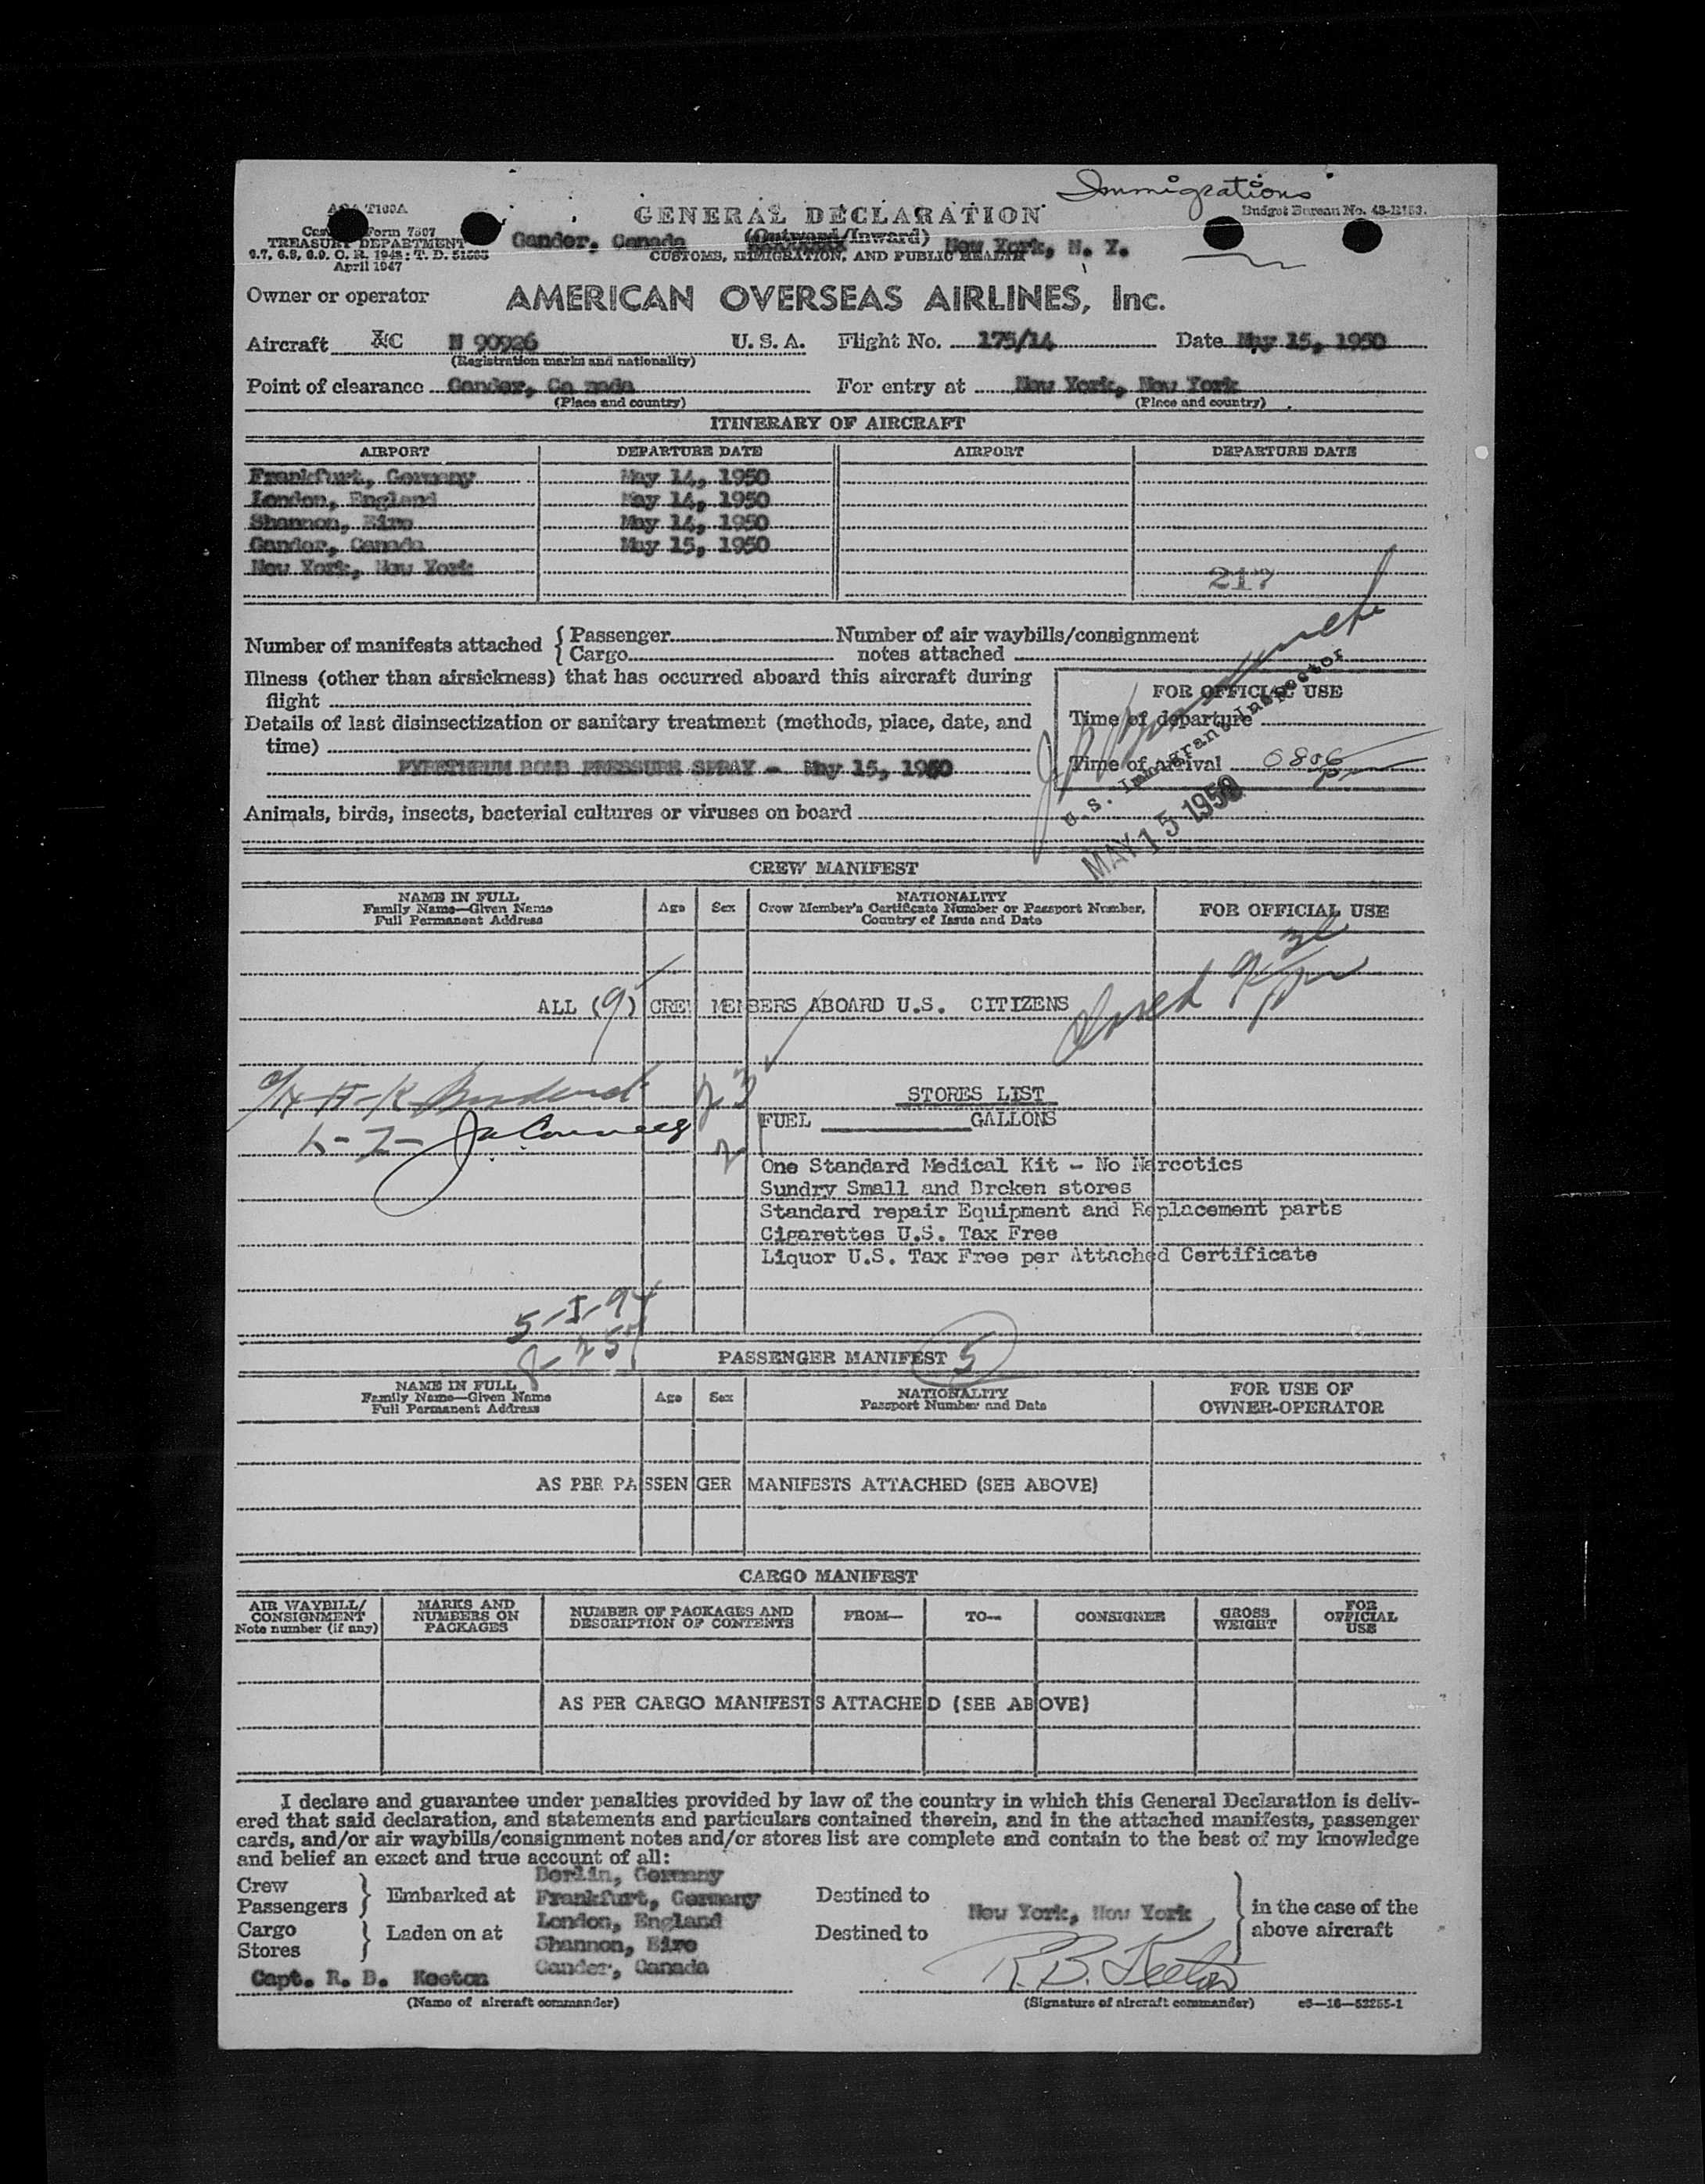 Immigrations
AOA T100A
GENERAL DECLARATION
Budget Bureau No.
Form 7507
(Outward/Inward)
TREASURY DEPARTMENT
Gander, Canada
New York, N. Y.
CUSTOMS, IMMIGRATION, AND PUBLIC HEALTH
April 1947
Owner or operator AMERICAN OVERSEAS AIRLINES, Inc.
Aircraft NC N 90926 U. S. A. Flight No. 175/14 Date May 15, 1950
(Registration marks and nationality)
Point of clearance Gander, Ca nada For entry at New York, New York
(Place and country) (Place and country)
ITINERARY OF AIRCRAFT
AIRPORT DEPARTURE DATE AIRPORT DEPARTURE DATE
Frankfurt, Germany May 14, 1950
London, England May 14, 1950
Shannon, Eire May 14, 1950
Gander, Canada May 15, 1950
New York, New York
217
Number of manifests attached { Passenger Number of air waybills/consignment
{ Cargo notes attached
Illness (other than airsickness) that has occurred aboard this aircraft during
flight
FOR OFFICIAL USE
Details of last disinsectization or sanitary treatment (methods, place, date, and
Time of departure
time)
PYRETHRUM BOMB PRESSURE SPRAY - May 15, 1950
Time of arrival
U.S. Immigrant Inspector
MAY 15 1950
Animals, birds, insects, bacterial cultures or viruses on board
CREW MANIFEST
NAME IN FULL Age Sex NATIONALITY FOR OFFICIAL USE
Family Name—Given Name Crew Member's Certificate Number or Passport Number,
Full Permanent Address Country of Issue and Date
ALL (9) CREW MEMBERS ABOARD U.S. CITIZENS
23
STORES LIST
FUEL GALLONS
2
One Standard Medical Kit - No Narcotics
Sundry Small and Broken stores
Standard repair Equipment and Replacement parts
Cigarettes U.S. Tax Free
Liquor U.S. Tax Free per Attached Certificate
PASSENGER MANIFEST 5
NAME IN FULL Age Sex NATIONALITY FOR USE OF
Family Name—Given Name Passport Number and Date OWNER-OPERATOR
Full Permanent Address
AS PER PASSENGER MANIFESTS ATTACHED (SEE ABOVE)
CARGO MANIFEST
AIR WAYBILL/ MARKS AND NUMBER OF PACKAGES AND FROM— TO— CONSIGNEE GROSS FOR
CONSIGNMENT NUMBERS ON DESCRIPTION OF CONTENTS WEIGHT OFFICIAL
Note number (if any) PACKAGES USE
AS PER CARGO MANIFESTS ATTACHED (SEE ABOVE)
I declare and guarantee under penalties provided by law of the country in which this General Declaration is deliv-
ered that said declaration, and statements and particulars contained therein, and in the attached manifests, passenger
cards, and/or air waybills/consignment notes and/or stores list are complete and contain to the best of my knowledge
and belief an exact and true account of all:
Berlin, Germany
Crew
Passengers } Embarked at Frankfurt, Germany Destined to
London, England New York, New York } in the case of the
Cargo above aircraft
Stores } Laden on at Shannon, Eire Destined to
Gander, Canada
Capt. R. B. Keeton R.B. Keeton
(Name of aircraft commander) (Signature of aircraft commander) c5—16—52255-1